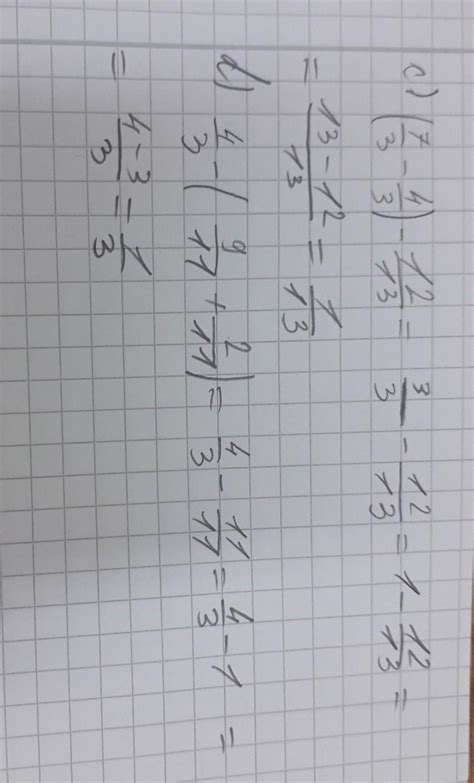 c) (7/3 - 4/3) - 12/13 = 3/3 - 12/13 = 1 - 12/13 =
= (13 - 12)/13 = 1/13
d) 4/3 - (9/11 + 2/11) = 4/3 - 11/11 = 4/3 - 1 =
= (4 - 3)/3 = 1/3